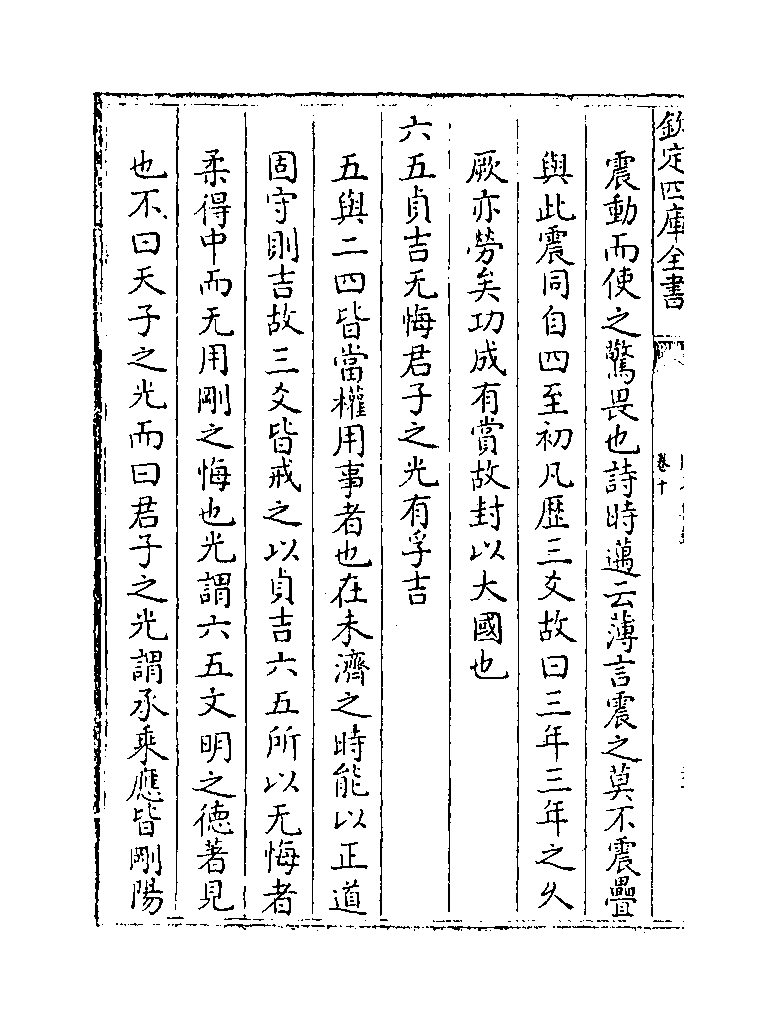 欽定四庫全書
卷十
震動而使之驚畏也詩時邁云薄言震之莫不震疊
與此震同自四至初凡歷三爻故曰三年三年之久
厥亦勞矣功成有賞故封以大國也
六五貞吉无悔君子之光有孚吉
五與二四皆當權用事者也在未濟之時能以正道
固守則吉故三爻皆戒之以貞吉六五所以无悔者
柔得中而无用剛之悔也光謂六五文明之德著見
也不曰天子之光而曰君子之光謂承乘應皆剛陽